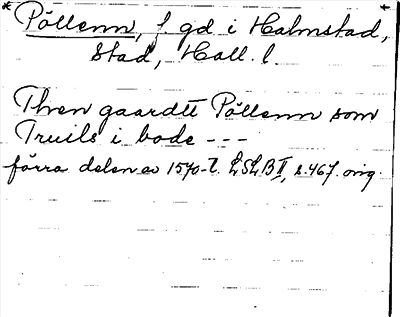 Pöllenn, f. gd i Halmstad,
Stad, Hall. l.
Then gaardtt Pöllenn som
Truils i bode - - -
förra delen av 1570-t. LSLB II, s. 467. orig.